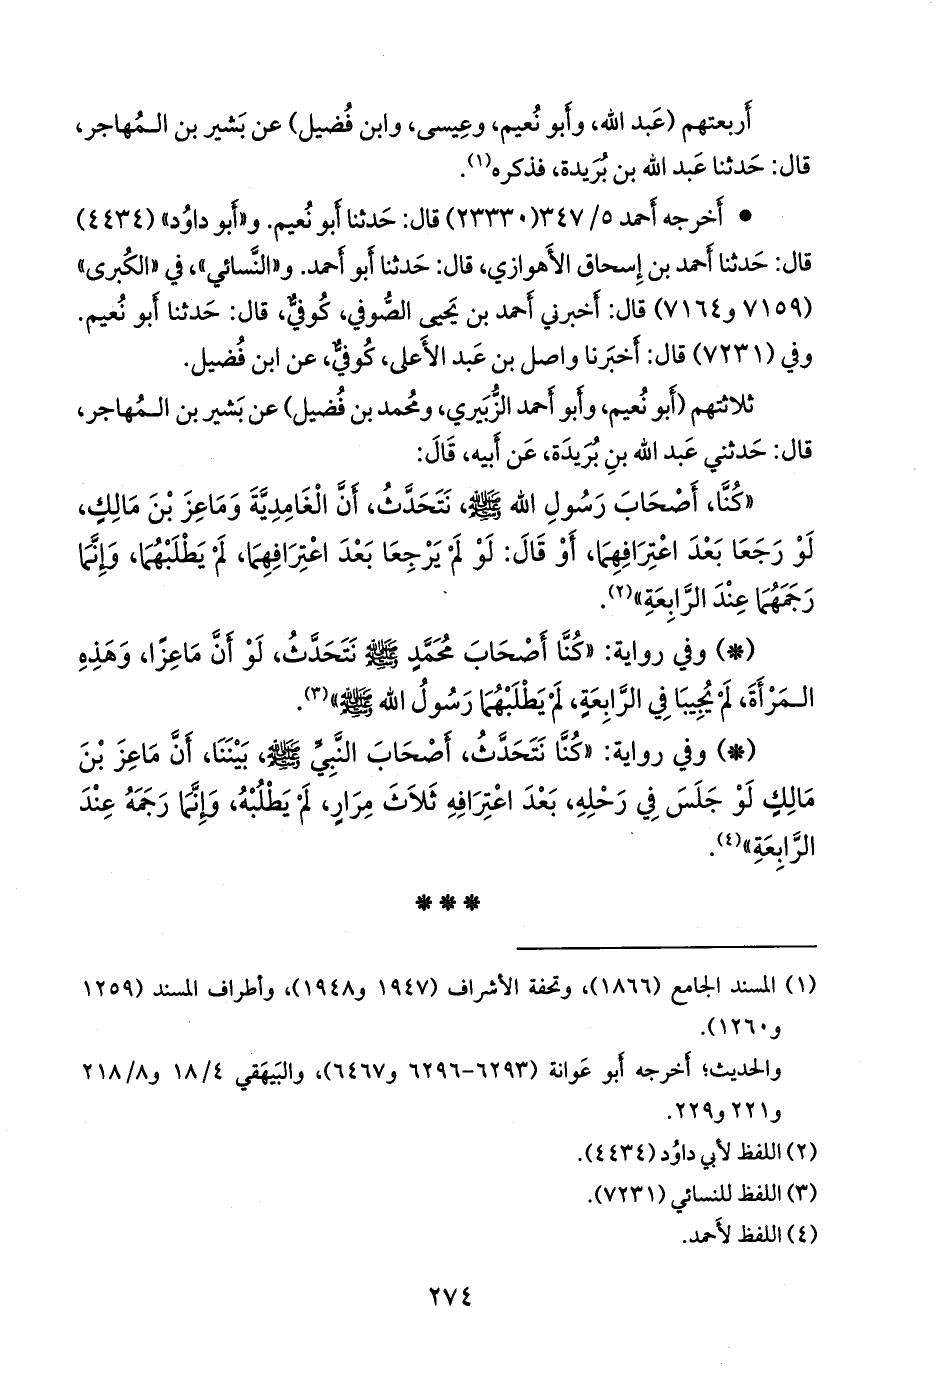 أَربعتهم (عَبد الله، وأَبو نُعيم، وعِيسى، وابن فُضيل) عن بَشير بن الـمُهاجر،
قال: حَدثنا عَبد الله بن بُرَيدة، فذكره(١).
• أَخرجه أَحمد ٥/ ٣٤٧(٢٣٣٣٠) قال: حَدثنا أَبو نُعيم. و«أَبو داوُد» (٤٤٣٤)
قال: حَدثنا أَحمد بن إِسحاق الأَهوازي، قال: حَدثنا أَبو أَحمد. و«النَّسائي»، في «الكُبرى»
(٧١٥٩ و٧١٦٤) قال: أَخبرني أَحمد بن يَحيى الصُّوفي، كُوفيٌّ، قال: حَدثنا أَبو نُعيم.
وفي (٧٢٣١) قال: أَخبَرنا واصل بن عَبد الأَعلى، كُوفيٌّ، عن ابن فُضيل.
ثلاثتهم (أَبو نُعيم، وأَبو أَحمد الزُّبَيري، ومُحمد بن فُضيل) عن بَشير بن الـمُهاجر،
قال: حَدثني عَبد الله بنِ بُرَيدَة، عَن أَبيه، قَالَ:
«كُنَّا، أَصْحَابَ رَسُولِ الله ﷺ، نَتَحَدَّثُ، أَنَّ الْغَامِدِيَّةَ وَمَاعِزَ بْنَ مَالِكٍ،
لَوْ رَجَعَا بَعْدَ اعْتِرَافِهِمَا، أَوْ قَالَ: لَوْ لَمْ يَرْجِعَا بَعْدَ اعْتِرَافِهِمَا، لَمْ يَطْلُبْهُمَا، وَإِنَّمَا
رَجَمَهُمَا عِنْدَ الرَّابِعَةِ»(٢).
(*) وفي رواية: «كُنَّا أَصْحَابَ مُحَمَّدٍ ﷺ نَتَحَدَّثُ، لَوْ أَنَّ مَاعِزًا، وَهَذِهِ
الـمَرْأَةَ، لَمْ يُجِيبَا فِي الرَّابِعَةِ، لَمْ يَطْلُبْهُمَا رَسُولُ الله ﷺ»(٣).
(*) وفي رواية: «كُنَّا نَتَحَدَّثُ، أَصْحَابَ النَّبِيِّ ﷺ، بَيْنَنَا، أَنَّ مَاعِزَ بْنَ
مَالِكٍ لَوْ جَلَسَ فِي رَحْلِهِ، بَعْدَ اعْتِرَافِهِ ثَلَاثَ مِرَارٍ، لَمْ يَطْلُبْهُ، وَإِنَّمَا رَجَمَهُ عِنْدَ
الرَّابِعَةِ»(٤).
* * *
(١) المسند الجامع (١٨٦٦)، وتحفة الأشراف (١٩٤٧ و١٩٤٨)، وأطراف المسند (١٢٥٩
و١٢٦٠).
والحديث؛ أخرجه أبو عَوانة (٦٢٩٣-٦٢٩٦ و٦٤٦٧)، والبَيهَقي ١٨/٤ و٢١٨/٨
و٢٢١ و٢٢٩.
(٢) اللفظ لأبي داوُد (٤٤٣٤).
(٣) اللفظ للنسائي (٧٢٣١).
(٤) اللفظ لأَحمد.
٢٧٤